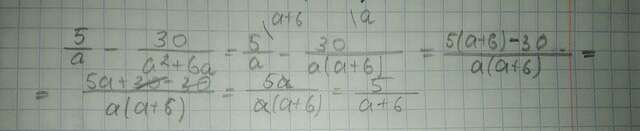 5/a - 30/(a²+6a) = 5/a \a+6 - 30/(a(a+6)) \a = (5(a+6)-30)/(a(a+6)) =
= (5a+30-30)/(a(a+6)) = 5a/(a(a+6)) = 5/(a+6)